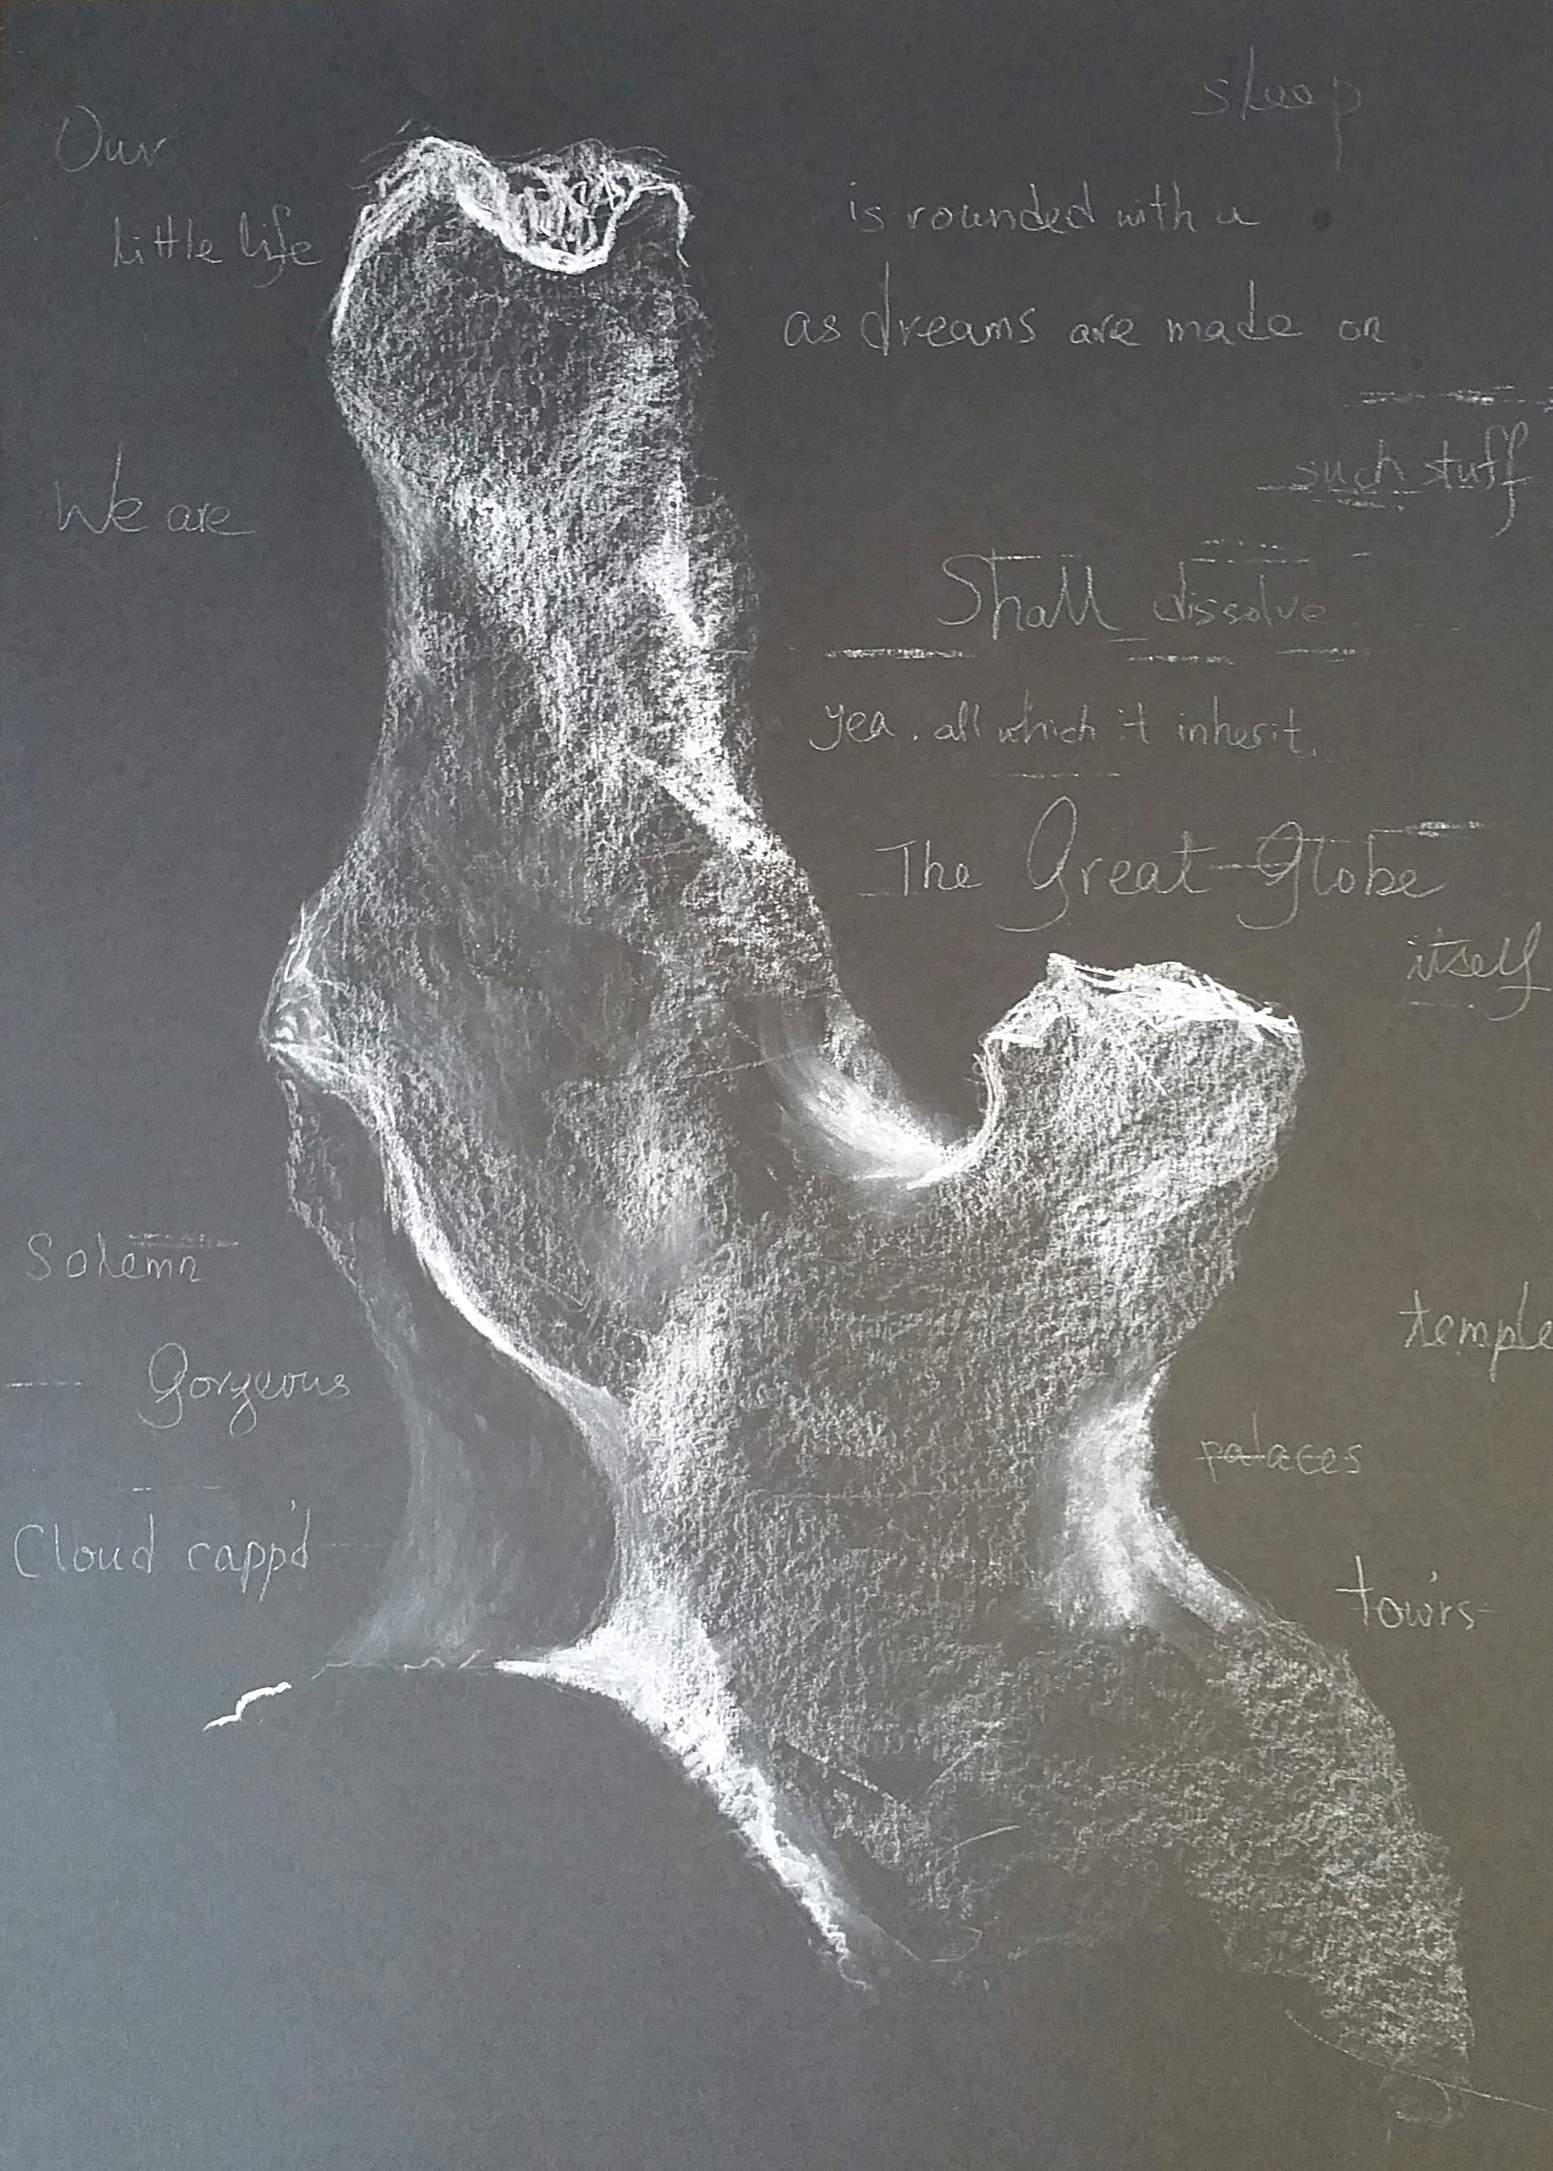 sleep
Our
little life
is rounded with a
as dreams are made on
such stuff
We are
Shall dissolve
yea. all which it inherit.
The Great Globe
itself
Solemn
temple
Gorgeous
palaces
Cloud capp'd
tow'rs